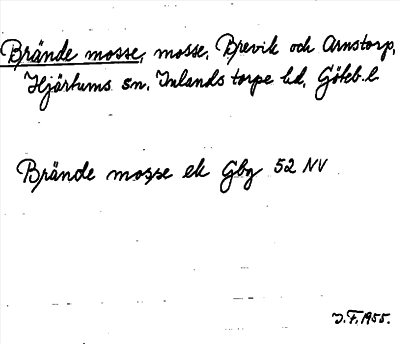 Brände mosse, mosse, Brevik och Arnstorp,
Hjärtums sn, Inlands torpe hd, Göteb. l.
Brände mosse ek Gbg 52 NV
J.F. 1955.